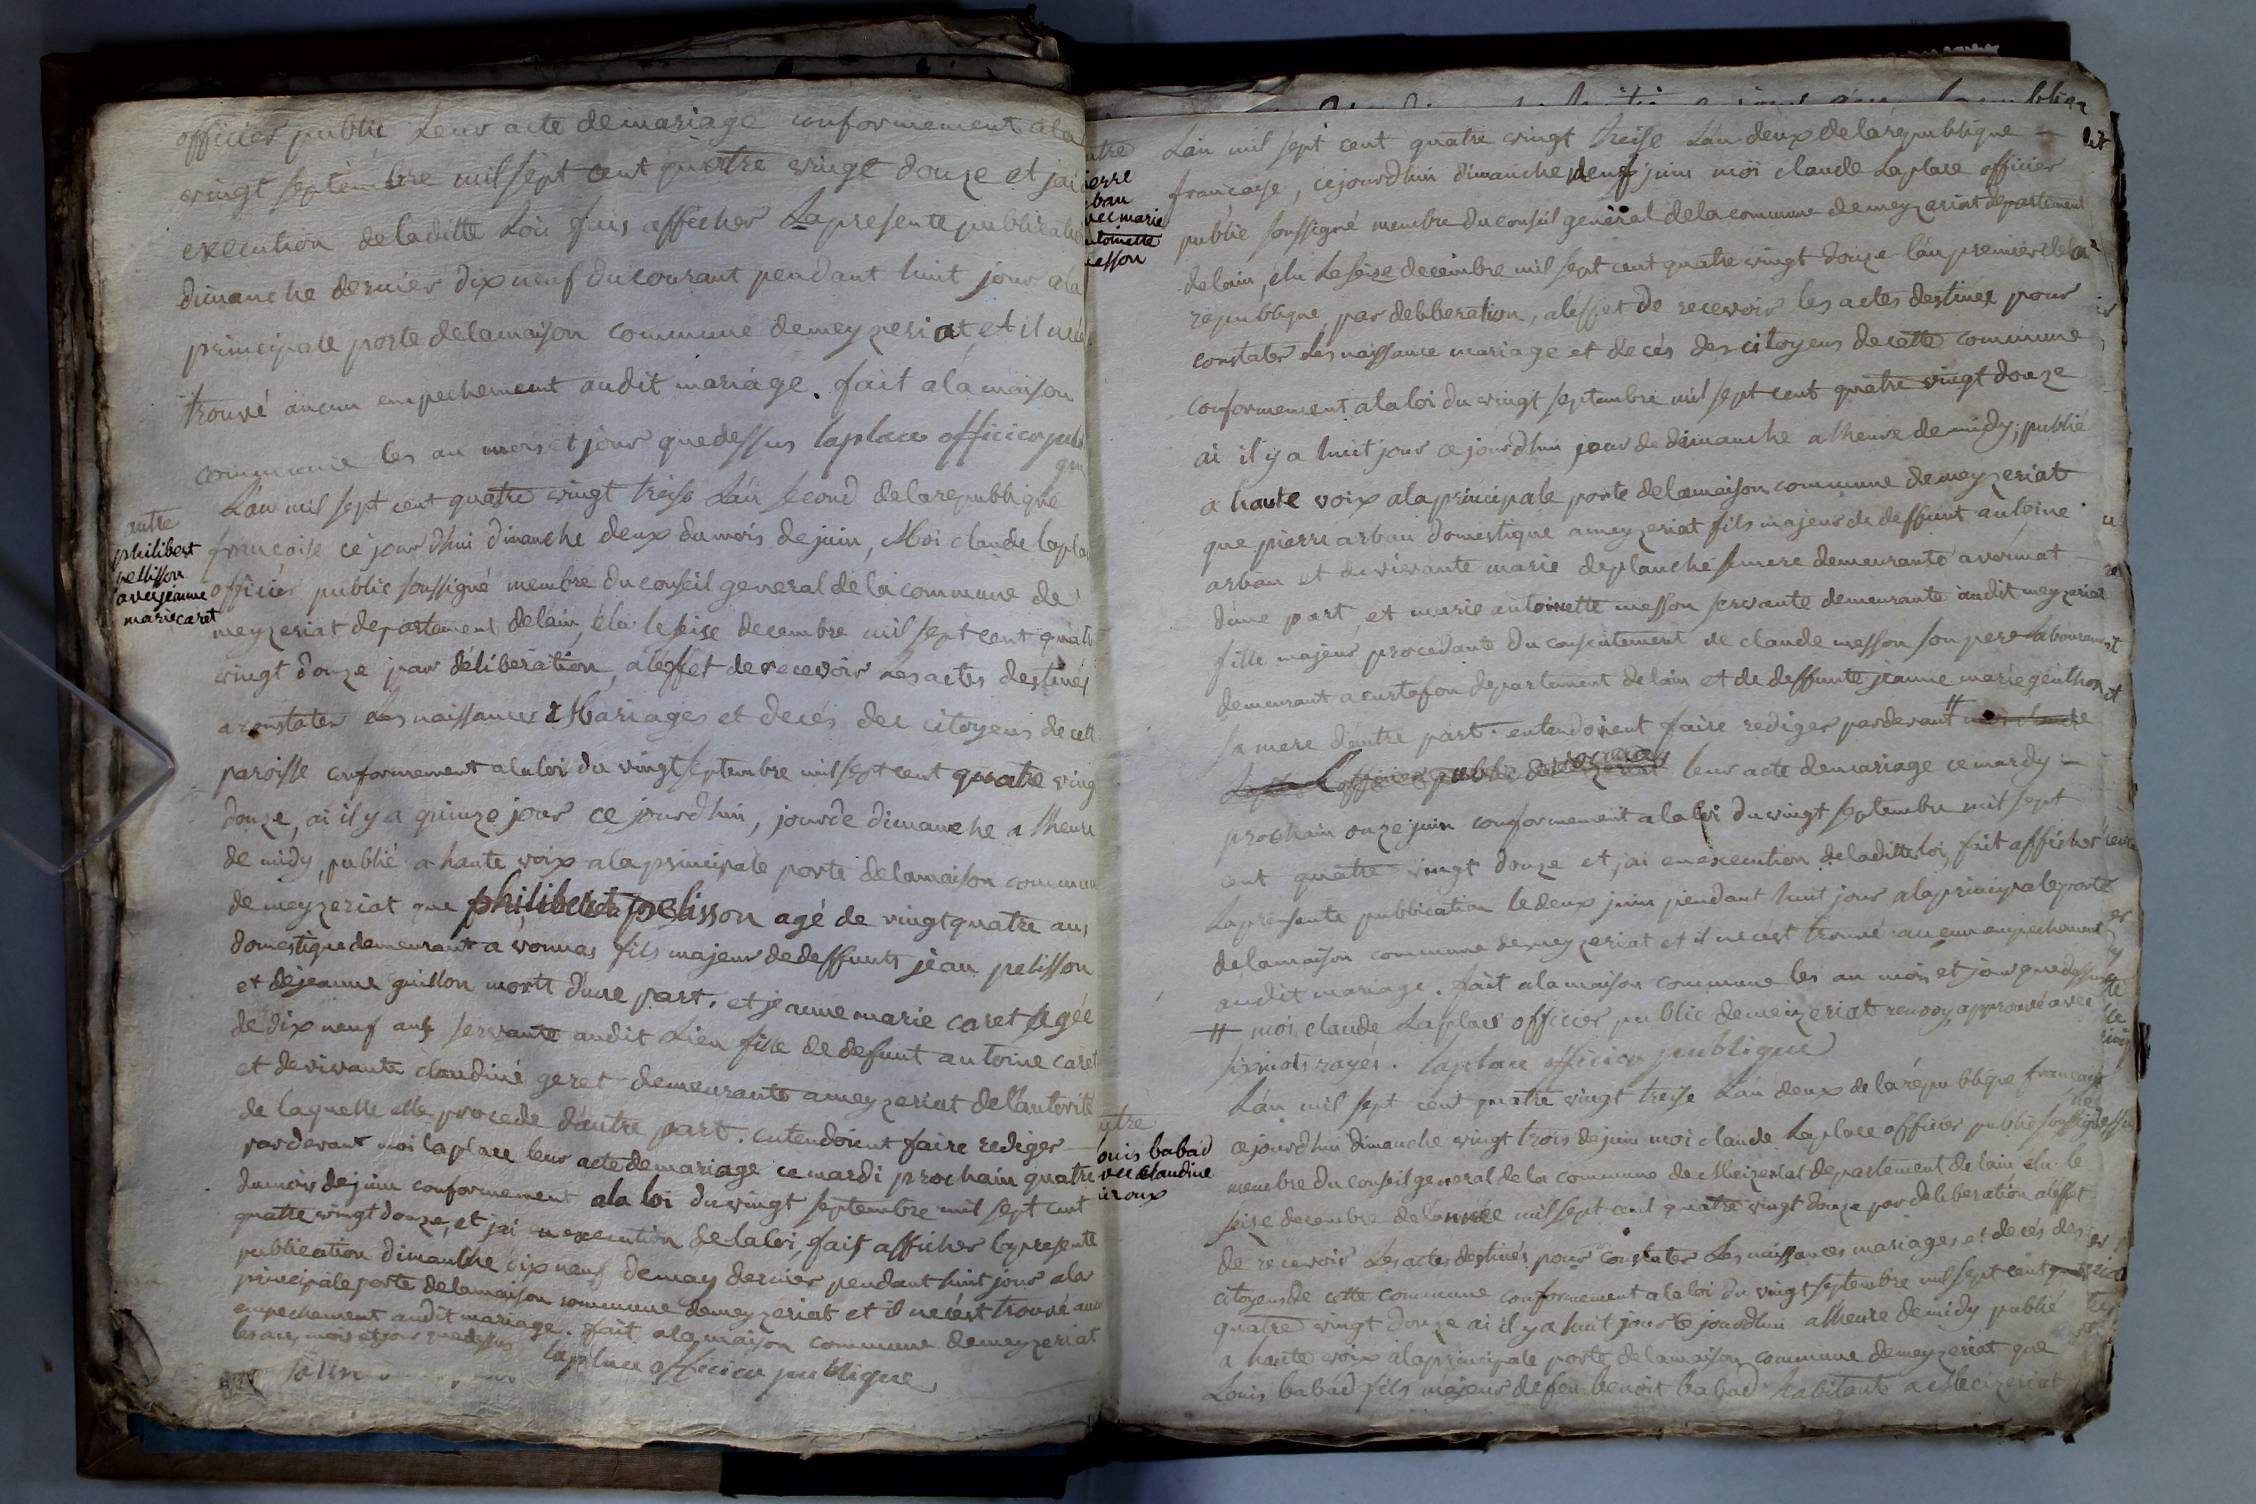 officier public Leur acte de mariage conformement ala
vingt septembre mil sept cent quatre vingt douze et jai
execution de laditte Loi fais afficher La presente publicati
dimanche dernier dix neuf du courant pendant huit jour ala
principale porte de lamaison commune de meyzeriat, et il
trouvé aucun empechement audit mariage. fait ala maison
commune les an mois et jour que dessus laplace officier pub
Lan mil sept cent quatre vingt treise Lan second de la republique
francoise ce jourdhui dimanche deux du mois de juin, Moi claude lapla
officier public soussigné membre du conseil general de la commune de
meyzeriat departement de lain, élu le seise decembre mil sept cent quat
vingt douze par déliberation, aleffet de recevoir Les actes destinés
a constater les naissances Mariages et decés des citoyens de cett
paroisse conformement ala loi du vingt septembre mil sept cent quatre ving
douze, ai il y a quinze jour ce jourdhui, jour de dimanche a lheure
de midy, publié a haute voix ala principale porte de lamaison commun
de meyzeriat que philibert pelisson agé de vingt quatre ans
domestique demeurant a vonnas fils majeur de deffunts jean pelisson
et de jeanne guillon morts dune part. et jeanne marie caret agée
de dix neuf ans servante audit Lieu fille de defunt antoine caret
et de vivante claudine geret demeurante a meyzeriat de lautorité
de laquelle elle procede dautre part. entendoient faire rediger
pardevant moi laplace leur acte de mariage ce mardi prochain quatre
du mois de juin conformement ala loi du vingt septembre mil sept cent
quatre vingt douze, et jai en execution de la loi, fait afficher la presente
publication dimanche dix neuf de may dernier pendant huit jour ala
principale porte de lamaison commune de meyzeriat et il ne cest trouvé auc
empechement audit mariage. fait ala maison commune de meyzeriat
les an, mois et jour que dessus laplace officier publique
entre
philibert
pellisson
avec jeanne
marie caret
Lan mil sept cent quatre vingt treise Lan deux de la republique
francoise, ce jourdhui dimanche neuf juin moi claude Laplace officier
public soussigné membre du conseil general de la commune de meyzeriat departement
de lain, elu le seise decembre mil sept cent quatre vingt douze lan premier de la
republique, par deliberation, aleffet de recevoir les actes destinez pour
constater Les naissance mariage et decés des citoyens de cette commune
conformement ala loi du vingt septembre mil sept cent quatre vingt douze
ai il y a huit jour ce jourdhui jour de dimanche a lheure de midy, publié
a haute voix ala principale porte de lamaison commune de meyzeriat
que pierre arban domestique a meyzeriat fils majeur de deffunt antoine
arban et de vivante marie deplanche sa mere demeurante a
dune part, et marie antoinette messon servante demeurante audit meyzeriat
fille majeur, procedante du consentement de claude messon son pere laboureur
demeurant a curtafon departement de lain et de deffunte jeanne marie genthon
sa mere dautre part. entendoient faire rediger pardevant # moi claude
Laplace officier public de meyzeriat leur acte de mariage ce mardy
prochain onze juin conformement ala loi du vingt septembre mil sept
cent quatre vingt douze et jai en execution de laditte loi, fait afficher
La presente publication le deux juin pendant huit jour ala principale porte
de lamaison commune de meyzeriat et il ne cest trouvé aucun empechement
audit mariage. fait ala maison commune les an mois et jour que dessus
# moi claude Laplace officier public de meizeriat renvoy approuvé avec
six mots rayés. laplace officier publique
Lan mil sept cent quatre vingt treise Lan deux de la republique francoise
ce jourdhui dimanche vingt trois de juin moi claude Laplace officier public soussigné
membre du conseil general de la commune de Meizeriat departement de lain elu le
seise decembre de lannée mil sept cent quatre vingt douze par deliberation aleffet
de recevoir Les actes destinés pour constater Les naissances mariages et decés des
citoyens de cette commune conformement ala loi du vingt septembre mil sept cent
quatre vingt douze ai il y a huit jour ce jourdhui a lheure de midy publié
a haute voix ala principale porte de lamaison commune de meyzeriat que
Louis babad fils majeur de feu benoit babad habitant a Meizeriat
ntre
ierre
ban
vec marie
ntoinette
messon
ntre
ouis babad
vec claudine